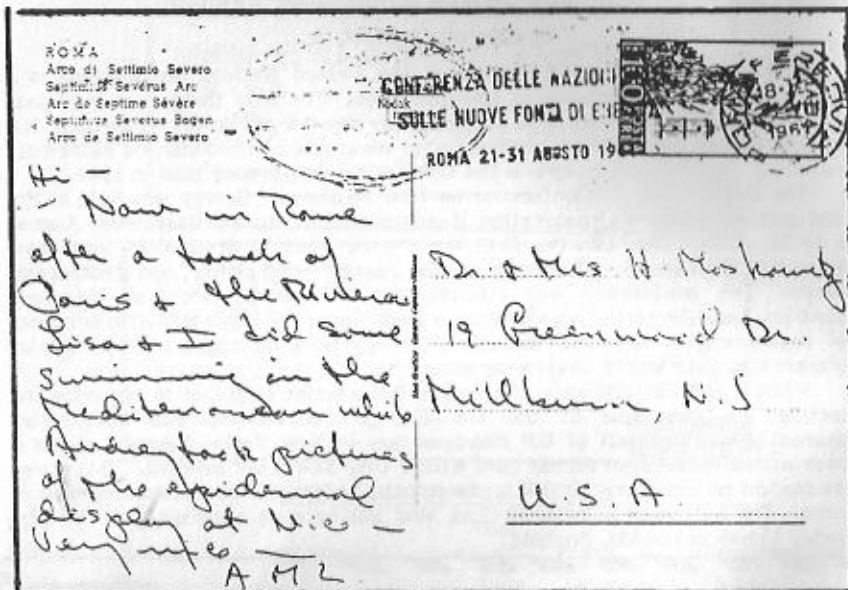 ROMA
Arco di Settimio Severo
Septimus Severus Arc
Arc de Septime Sévère
Septimius Severus Bogen
Arco de Settimio Severo
Kodak
CONFERENZA DELLE NAZIONI
SULLE NUOVE FONTI DI ENE
ROMA 21-31 AGOSTO 19
Hi
Now in Rome
after a touch of
Paris & the Riviera
Lisa & I did some
swimming in the
Mediterranean while
took pictures
of the epidermal
display at Nice
Very nice
Dr. & Mrs H
19 Dr.
N.J
U.S.A.